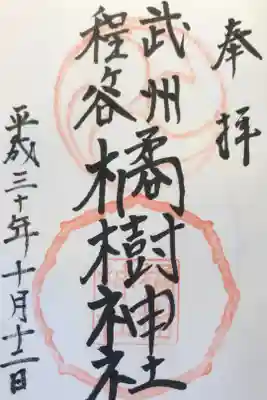 奉拝
武州
程ヶ谷
橘樹神社
平成三十年十月十二日